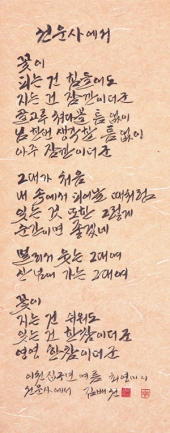 선운사에서
꽃이
피는 건 힘들어도
지는 건 잠깐이더군
골고루 쳐다볼 틈 없이
님 한번 생각할 틈 없이
아주 잠깐이더군
그대가 처음
내 속에서 피어날 때처럼
잊는 것 또한 그렇게
순간이면 좋겠네
멀리서 웃는 그대여
산 넘어 가는 그대여
꽃이
지는 건 쉬워도
잊는 건 한참이더군
영영 한참이더군
여름 최영미 시
선운사에서